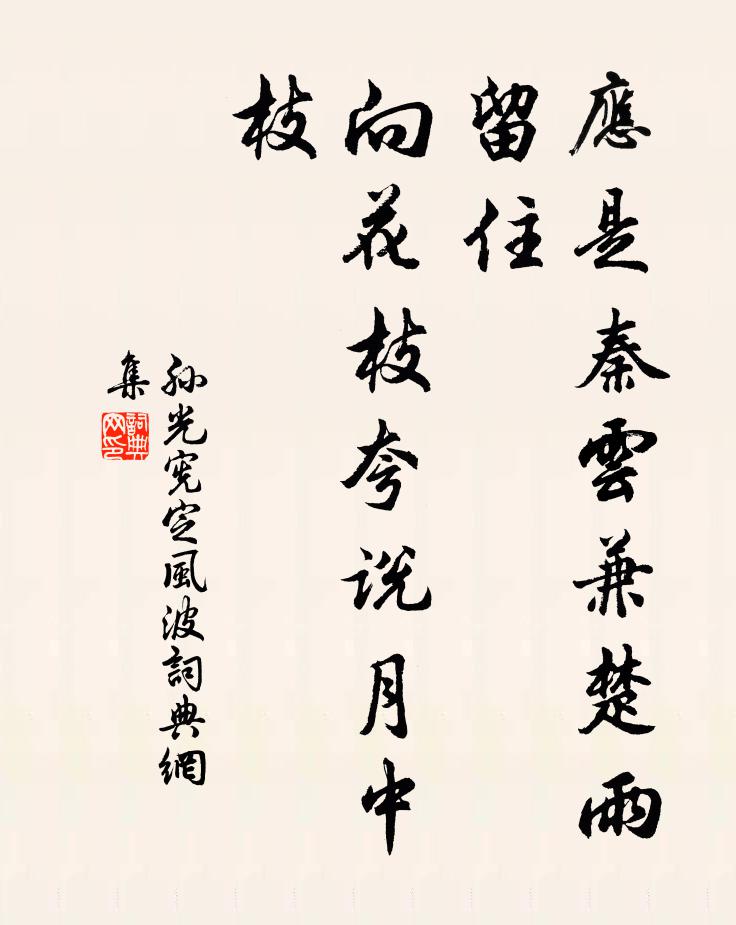 應是秦雲兼楚雨
留住
向花枝夸説月中
枝
孙光宪定風波詞典網
集
詞典网印